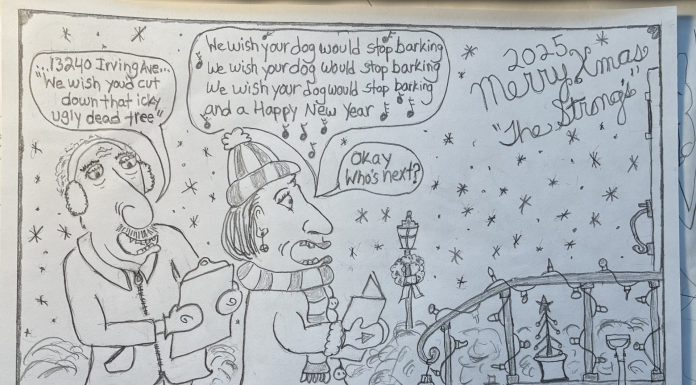 ...13240 Irving Ave...
"We wish you'd cut
down that icky
ugly dead tree"
We wish your dog would stop barking
We wish your dog would stop barking
We wish your dog would stop barking
and a Happy New Year
Okay
Who's next?
2025
Merry Xmas
"The Strong's"